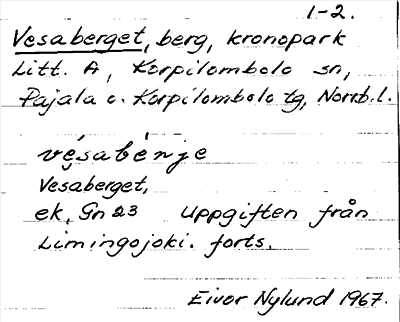 1-2.
Vesaberget, berg, kronopark
Litt. A, Korpilombolo sn,
Pajala o. Korpilombolo tg, Norrb.l.
vésabénje
Vesaberget,
ek, Gn 23 Uppgiften från
Limingojoki. forts.
Eivor Nylund 1967.